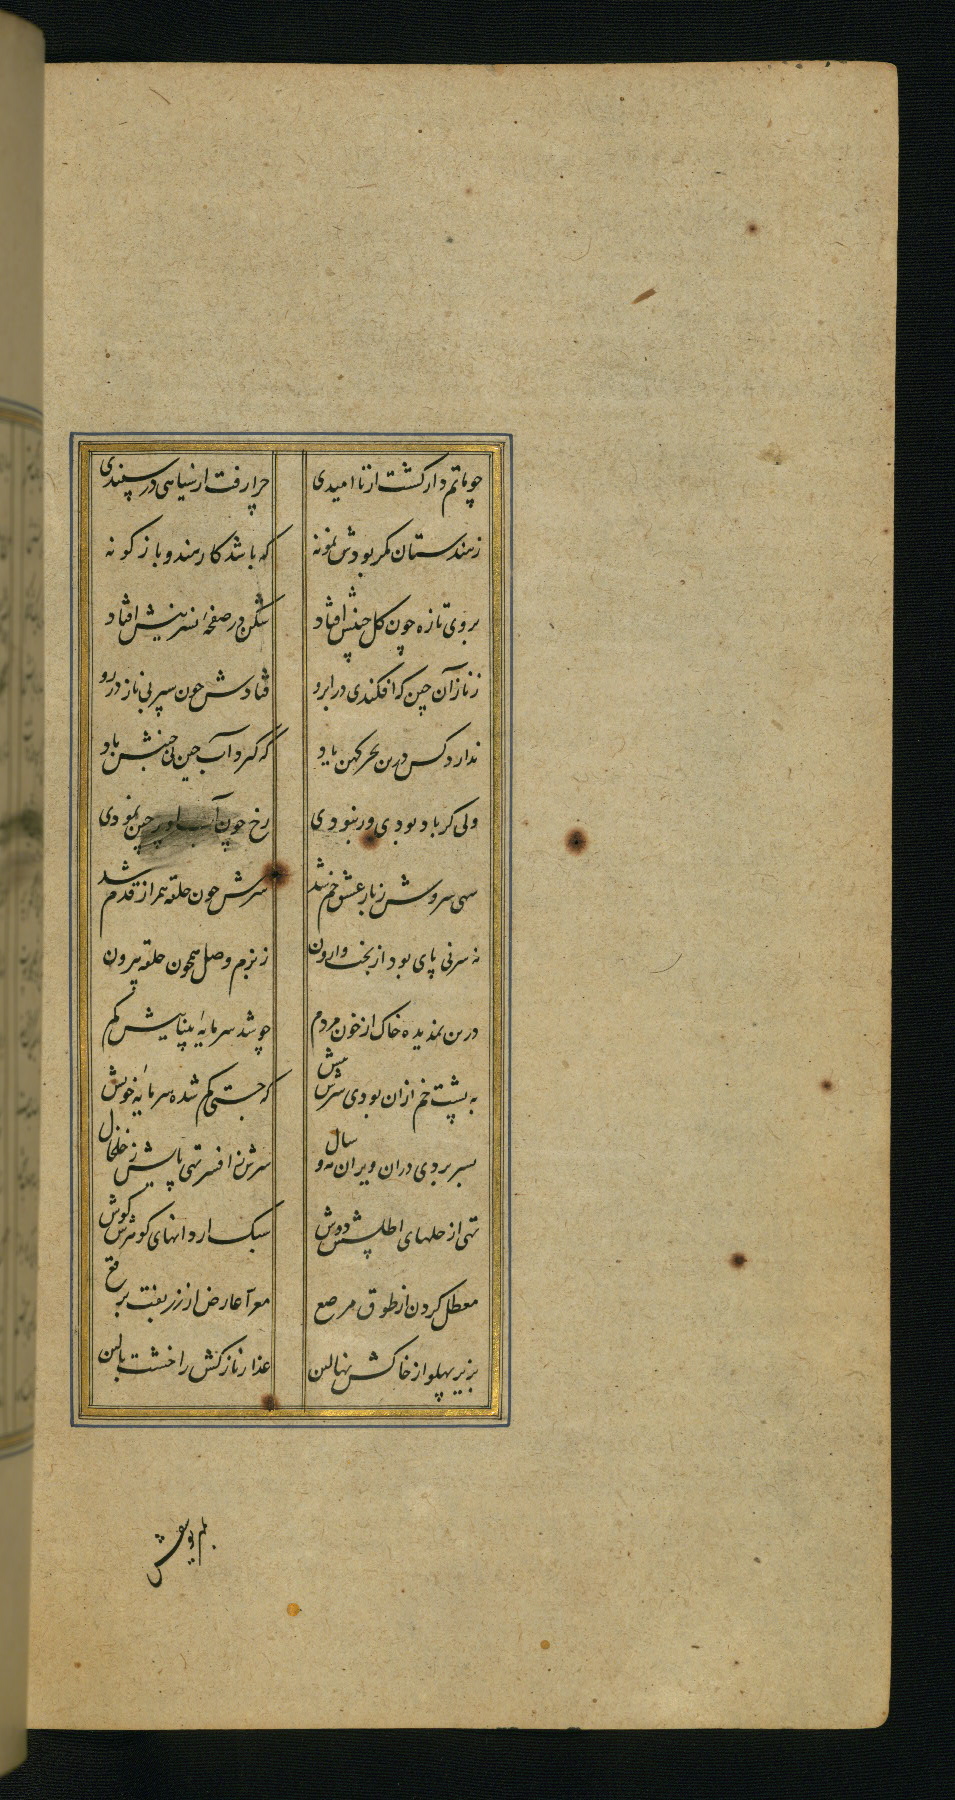 چو ماتم دار گشت از ناامیدی چرا رفت از سیاهی در سپیدی
ز هندستان مگر بودش نمونه که باشد کار هندو باژگونه
بروی تازه چون گل چینش افتاد شکن در صفحهٔ نسرینش افتاد
ز ناز آن چین که افکندی در ابرو فتادش چون سپر بی ناز در رو
ندارد کس درین بحر کهن یاد که گیرد آب چین بی جنبش باد
ولی گر باد بودی ور نبودی رخ چون آب او پر چین نمودی
سهی سروش ز بار عشق خم شد سرش چون حلقه همراز قدم شد
نه سر نی پای بود از بخت وارون ز بزم وصل همچون حلقه بیرون
درین نمدیده خاک از خون مردم چو شد سرمایهٔ بیناییش گم
به پشت خم از آن بودی سرش پیش که جستی گم شده سرمایهٔ خویش
بسر بردی در آن ویران مه و سال سرش ز افسر تهی پایش ز خلخال
تهی از حلهای اطلسش دوش سبک از دانهای گوهرش گوش
معطل گردن از طوق مرصع معرا عارض از زربفت برقع
بزیر پهلو از خاکش نهالین عذار نازکش را خشت بالین